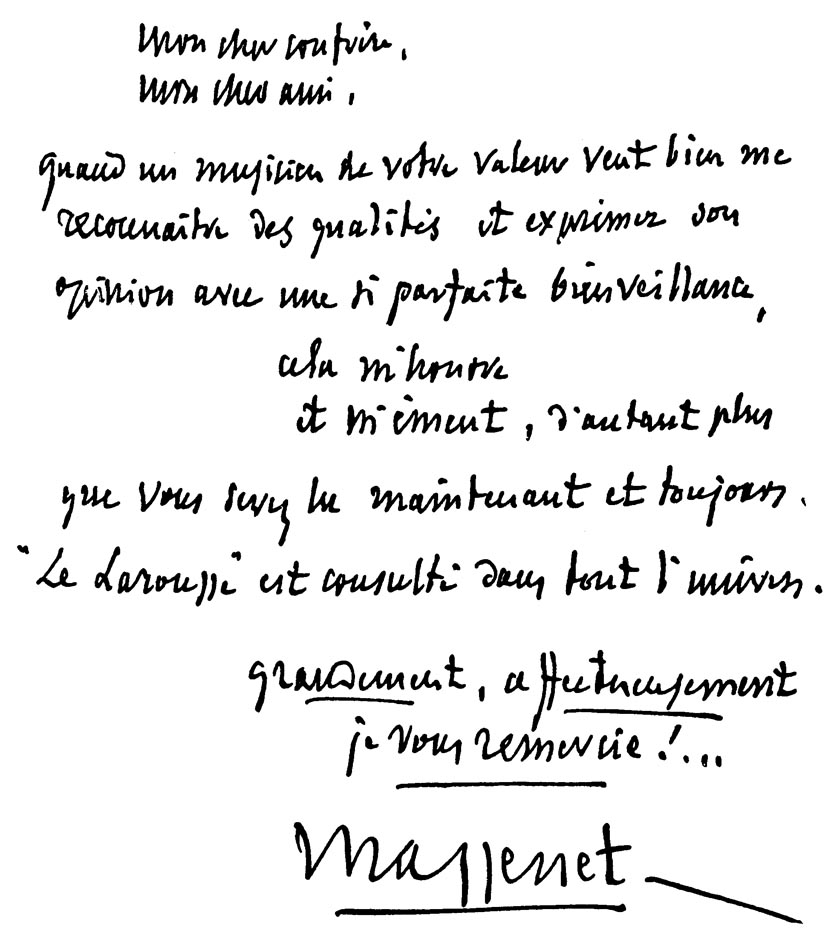 Mon cher confrère,
mon cher ami,
quand un musicien de votre valeur veut bien me
reconnaître des qualités et exprimer son
opinion avec une si parfaite bienveillance,
cela m'honore
et m'émeut, d'autant plus
que vous serez lu maintenant et toujours.
"Le Larousse" est consulté dans tout l'univers.
grandement, affectueusement
je vous remercie !...
Massenet